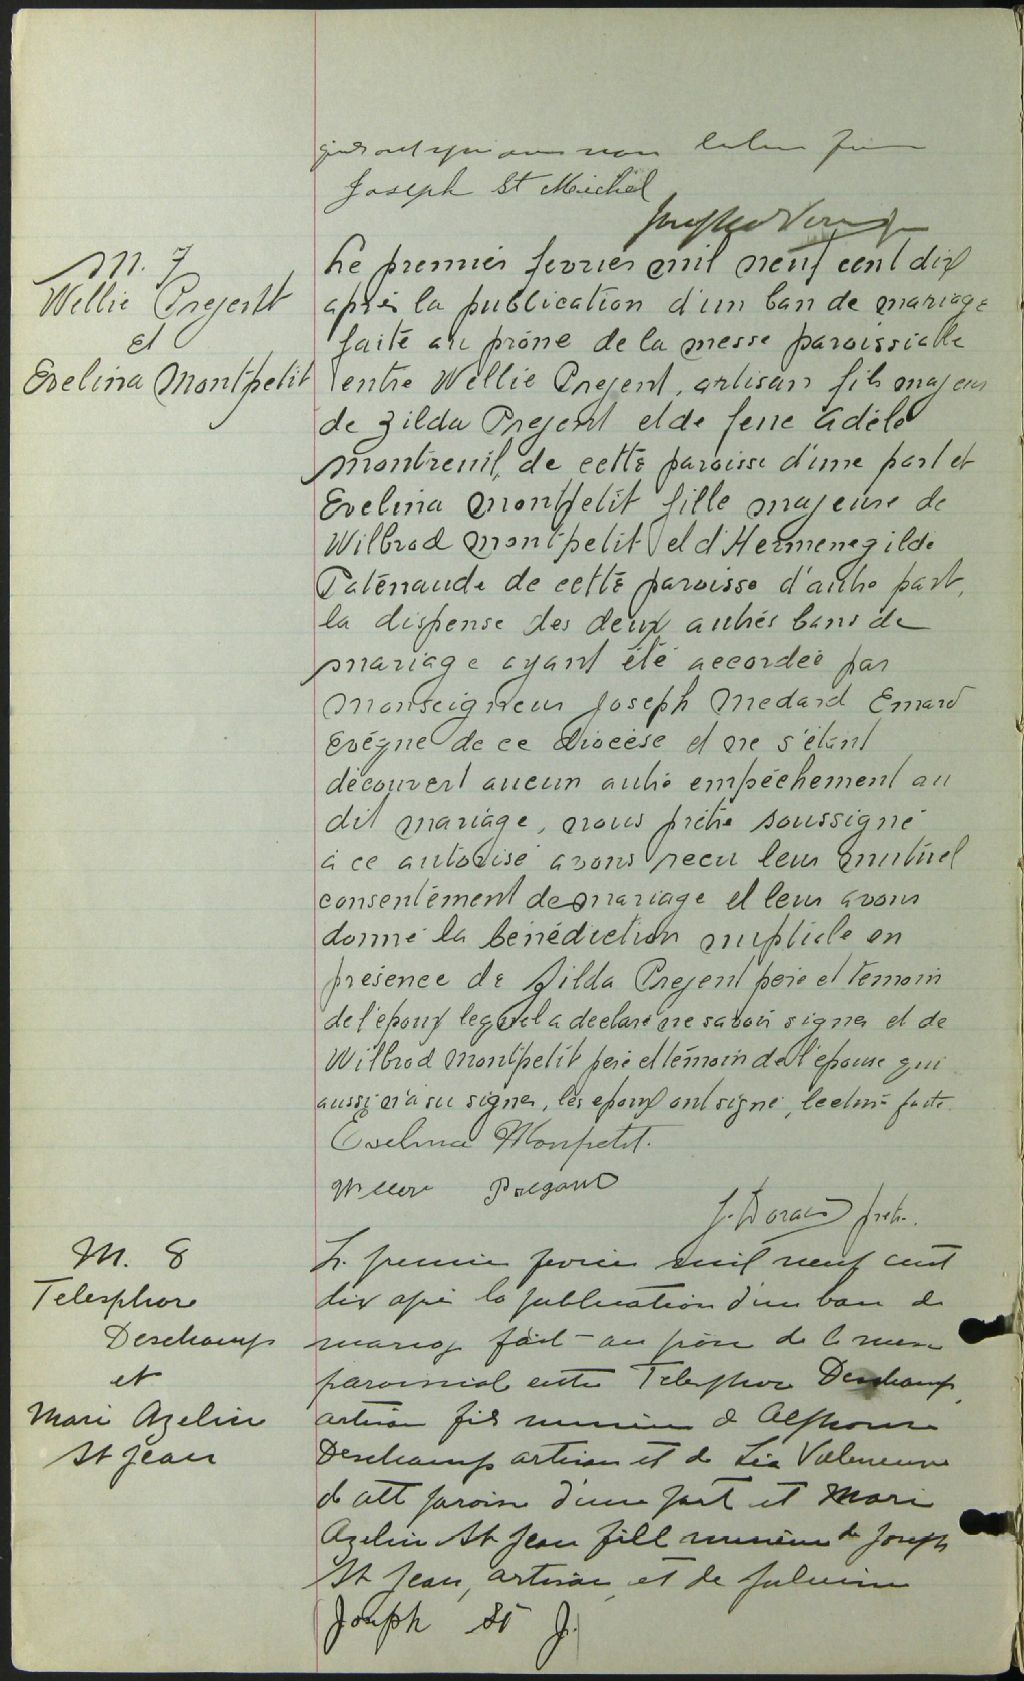 Joseph St Michel
M. 7
Wellie Prejent
et
Evelina Montpetit
Le premier fevrier mil neuf cent dix
après la publication d'un ban de mariage
faite au prône de la messe paroissialle
entre Wellie Prejent, artisan fils majeur
de Zilda Prejent et de feue Adéle
Montreuil, de cette paroisse d'une part et
Evelina Montpetit fille majeure de
Wilbrod Montpetit et d'Hermenegilde
Paténaude de cette paroisse d'autre part,
la dispense des deux autrés bans de
mariage ayant été accordée par
Monseigneur Joseph Medard Emard
Evêque de ce diocèse et ne s'étant
découvert aucun autre empêchement au
dit mariage, nous prêtre soussigné
à ce autorisé avons recu leur mutuel
consentément de mariage et leur avons
donné la bénédiction nuptiale en
présence de Zilda Prejent père et temoin
de l'epoux lequel a declaré ne savoir signer et de
Wilbrod Montpetit père et témoin de l'epouse qui
aussi n'a su signer, les epoux ont signé, lecture faite.
Evelina Monpetit.
J. Dorais ptre.
M. 8
Telesphore
Deschamp
et
Marie Azeline
St Jean
Le premier fevrier mil neuf cent
dix apré la publication d'un ban de
mariag fait au prône de la messe
paroissial entre Telesphore Deschamp,
artisan fils mineur de Alphonse
Deschamp artisan et de Léa Valeneuve
de cett paroisse d'une part et Marie
Azelin St Jean fill mineure de Joseph
St Jean, artisan, et de
Joseph St J.